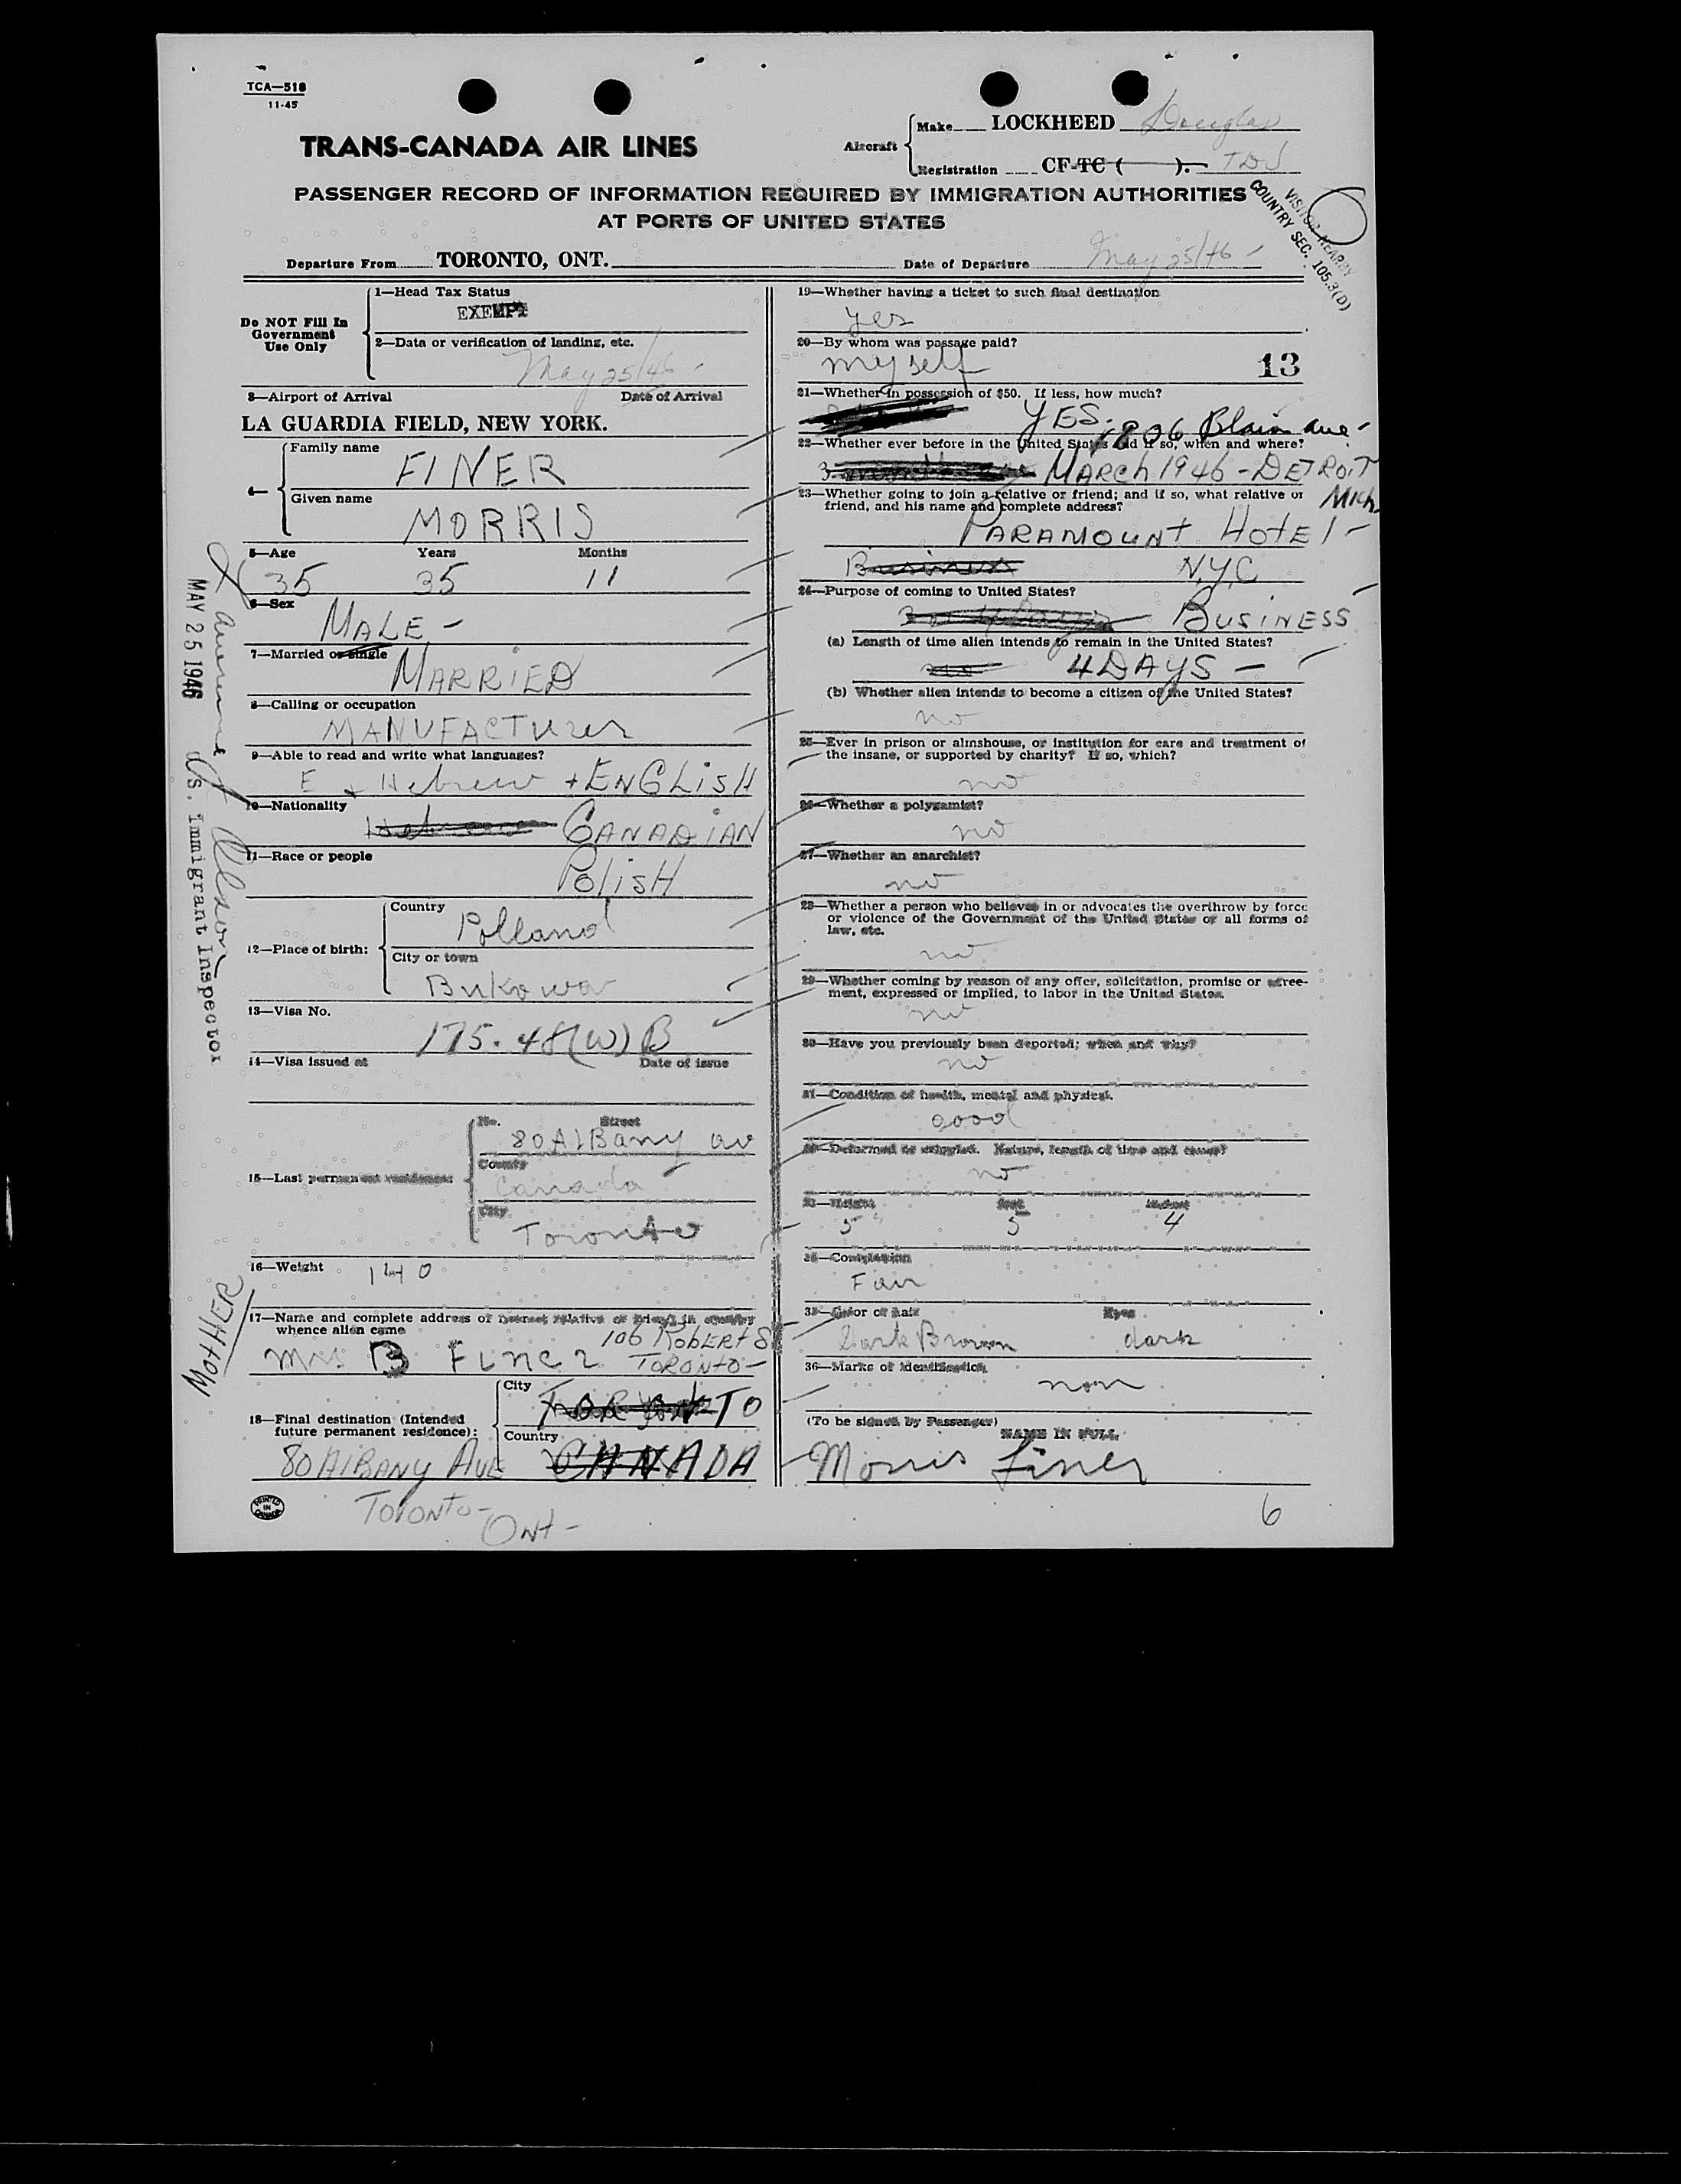 TCA—518
11-45
TRANS-CANADA AIR LINES
Aircraft
Make LOCKHEED Douglas
Registration CF-TC ( ). TDJ
PASSENGER RECORD OF INFORMATION REQUIRED BY IMMIGRATION AUTHORITIES
AT PORTS OF UNITED STATES
VISITOR NEARBY
COUNTRY SEC. 105.3(D)
Departure From TORONTO, ONT.
Date of Departure May 25/46
Do NOT Fill In
Government
Use Only
1—Head Tax Status
EXEMPT
2—Data or verification of landing, etc.
May 25/46
3—Airport of Arrival Date of Arrival
LA GUARDIA FIELD, NEW YORK.
4—
Family name
FINER
Given name
MORRIS
5—Age Years Months
35 35 11
6—Sex
MALE -
7—Married or single
MARRIED
8—Calling or occupation
MANUFACTURER
9—Able to read and write what languages?
E + Hebrew + ENGLISH
10—Nationality
CANADIAN
11—Race or people
POLISH
12—Place of birth:
Country
Polland
City or town
Bukowa
13—Visa No.
175.48(W) B
14—Visa issued at Date of issue
15—Last permanent residence:
No. Street
80 AlBany av
County
Canada
City
Toronto
16—Weight 140
17—Name and complete address of nearest relative or friend in country
whence alien came
106 ROBERT S
Mrs B Finer TORONTO -
MOTHER
18—Final destination (Intended
future permanent residence):
City
TO
Country
CANADA
80 AlBANY AVE
TORONTO -
Ont -
PRINTED
IN
CANADA
MAY 25 1946 U.S. Immigrant Inspector
19—Whether having a ticket to such final destination
yes
20—By whom was passage paid?
myself
13
21—Whether in possession of $50. If less, how much?
YES.
1806 Blain Ave -
22—Whether ever before in the United States and if so, when and where?
MARCH 1946 - DETROIT
Mich.
23—Whether going to join a relative or friend; and if so, what relative or
friend, and his name and complete address?
PARAMOUNT HOTEl -
Business N.Y.C
24—Purpose of coming to United States?
BUSINESS
(a) Length of time alien intends to remain in the United States?
no 4 DAYS -
(b) Whether alien intends to become a citizen of the United States?
no
25—Ever in prison or almshouse, or institution for care and treatment of
the insane, or supported by charity? If so, which?
no
26—Whether a polygamist?
no
27—Whether an anarchist?
no
28—Whether a person who believes in or advocates the overthrow by force
or violence of the Government of the United States or all forms of
law, etc.
no
29—Whether coming by reason of any offer, solicitation, promise or agree-
ment, expressed or implied, to labor in the United States.
no
30—Have you previously been deported; when and why?
no
31—Condition of health, mental and physical.
good
32—Deformed or crippled. Nature, length of time and cause?
no
33—Height feet inches
5 5 4
34—Complexion
Fair
35—Color of hair Eyes
Dark Brown dark
36—Marks of identification
non
(To be signed by Passenger)
NAME IN FULL
Morris Finer
6